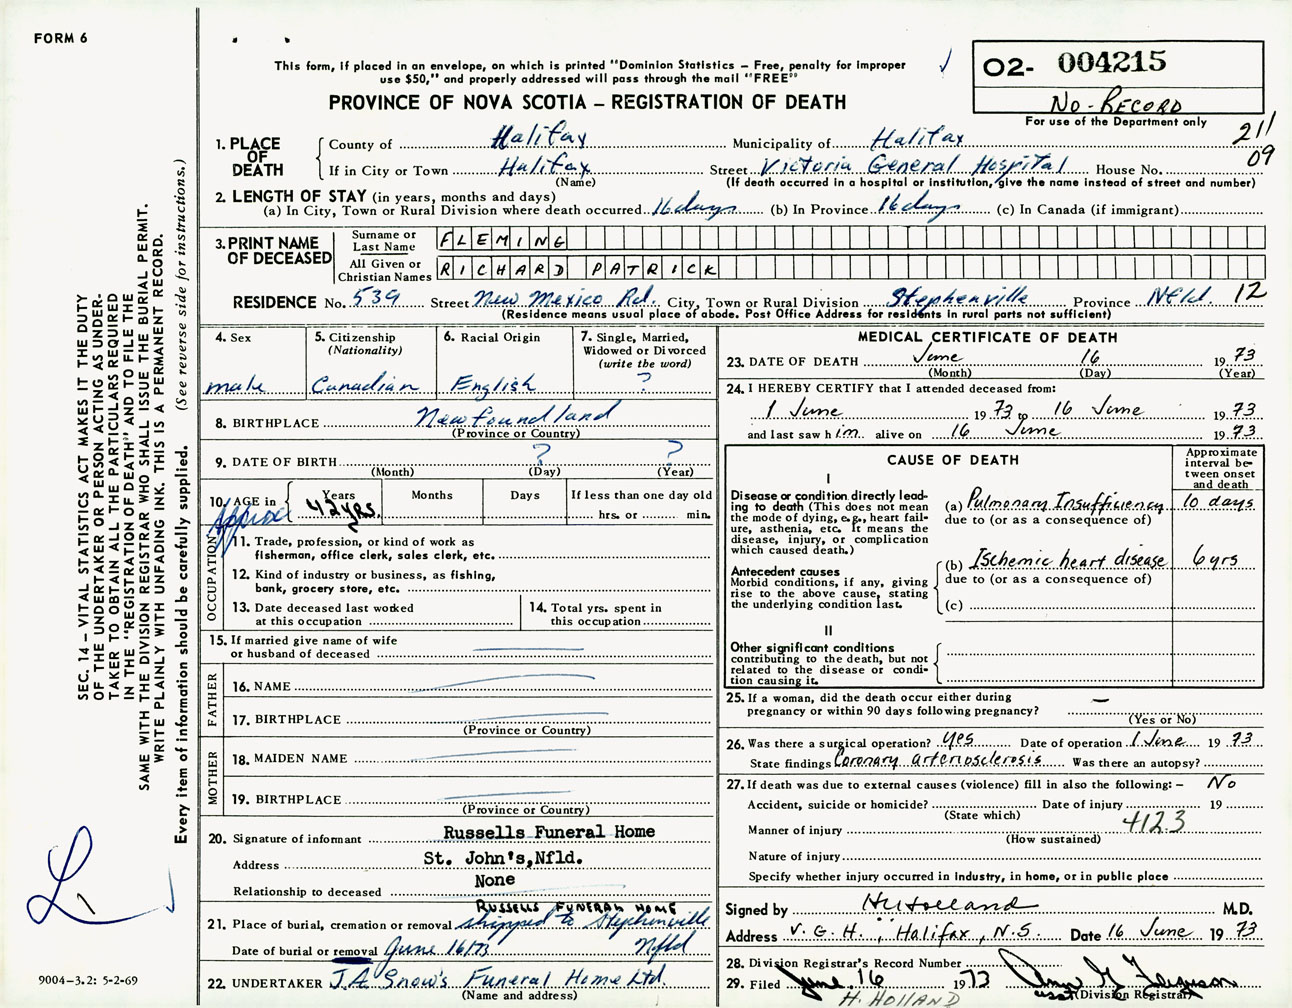 FORM 6
This form, if placed in an envelope, on which is printed "Dominion Statistics – Free, penalty for improper
use $50," and properly addressed will pass through the mail "FREE"
PROVINCE OF NOVA SCOTIA – REGISTRATION OF DEATH
O2- 004215
NO-RECORD
For use of the Department only
211
09
1. PLACE OF DEATH
County of Halifax Municipality of Halifax
If in City or Town Halifax Street Victoria General Hospital House No.
(Name) (If death occurred in a hospital or institution, give the name instead of street and number)
2. LENGTH OF STAY (in years, months and days)
(a) In City, Town or Rural Division where death occurred 16 days (b) In Province 16 days (c) In Canada (if immigrant)
3. PRINT NAME OF DECEASED
Surname or Last Name FLEMING
All Given or Christian Names RICHARD PATRICK
RESIDENCE No. 539 Street New Mexico Rd. City, Town or Rural Division Stephenville Province Nfld. 12
(Residence means usual place of abode. Post Office Address for residents in rural parts not sufficient)
4. Sex
male
5. Citizenship
(Nationality)
Canadian
6. Racial Origin
English
7. Single, Married,
Widowed or Divorced
(write the word)
?
8. BIRTHPLACE Newfoundland
(Province or Country)
9. DATE OF BIRTH ? ?
(Month) (Day) (Year)
10. AGE in Years Months Days If less than one day old
Approx 42 yrs. hrs. or min.
OCCUPATION
11. Trade, profession, or kind of work as
fisherman, office clerk, sales clerk, etc.
12. Kind of industry or business, as fishing,
bank, grocery store, etc.
13. Date deceased last worked
at this occupation
14. Total yrs. spent in
this occupation
15. If married give name of wife
or husband of deceased
FATHER
16. NAME
17. BIRTHPLACE
(Province or Country)
MOTHER
18. MAIDEN NAME
19. BIRTHPLACE
(Province or Country)
20. Signature of informant Russells Funeral Home
Address St. John's,Nfld.
Relationship to deceased None
RUSSELLS FUNERAL HOME
21. Place of burial, cremation or removal shipped to Stephenville
Date of burial or removal June 16/73 Nfld
22. UNDERTAKER J.A. Snow's Funeral Home Ltd.
(Name and address)
MEDICAL CERTIFICATE OF DEATH
23. DATE OF DEATH June 16 1973
(Month) (Day) (Year)
24. I HEREBY CERTIFY that I attended deceased from:
1 June 1973 to 16 June 1973
and last saw him alive on 16 June 1973
CAUSE OF DEATH
Approximate
interval be-
tween onset
and death
I
Disease or condition directly lead-
ing to death (This does not mean
the mode of dying, e.g., heart fail-
ure, asthenia, etc. It means the
disease, injury, or complication
which caused death.)
(a) Pulmonary Insufficiency 10 days
due to (or as a consequence of)
Antecedent causes
Morbid conditions, if any, giving
rise to the above cause, stating
the underlying condition last.
(b) Ischemic heart disease 6 yrs
due to (or as a consequence of)
(c)
II
Other significant conditions
contributing to the death, but not
related to the disease or condi-
tion causing it.
25. If a woman, did the death occur either during
pregnancy or within 90 days following pregnancy? —
(Yes or No)
26. Was there a surgical operation? yes Date of operation 1 June 1973
State findings Coronary arteriosclerosis Was there an autopsy?
27. If death was due to external causes (violence) fill in also the following: – No
Accident, suicide or homicide? Date of injury 19
(State which)
Manner of injury 412.3
(How sustained)
Nature of injury
Specify whether injury occurred in industry, in home, or in public place
Signed by H Holland M.D.
Address V.G.H., Halifax, N.S. Date 16 June 1973
28. Division Registrar's Record Number
29. Filed June 16 1973
(Division Registrar)
H. HOLLAND
SEC. 14 – VITAL STATISTICS ACT MAKES IT THE DUTY
OF THE UNDERTAKER OR PERSON ACTING AS UNDER-
TAKER TO OBTAIN ALL THE PARTICULARS REQUIRED
IN THE "REGISTRATION OF DEATH" AND TO FILE THE
SAME WITH THE DIVISION REGISTRAR WHO SHALL ISSUE THE BURIAL PERMIT.
WRITE PLAINLY WITH UNFADING INK. THIS IS A PERMANENT RECORD.
Every item of information should be carefully supplied. (See reverse side for instructions.)
9004-3.2: 5-2-69